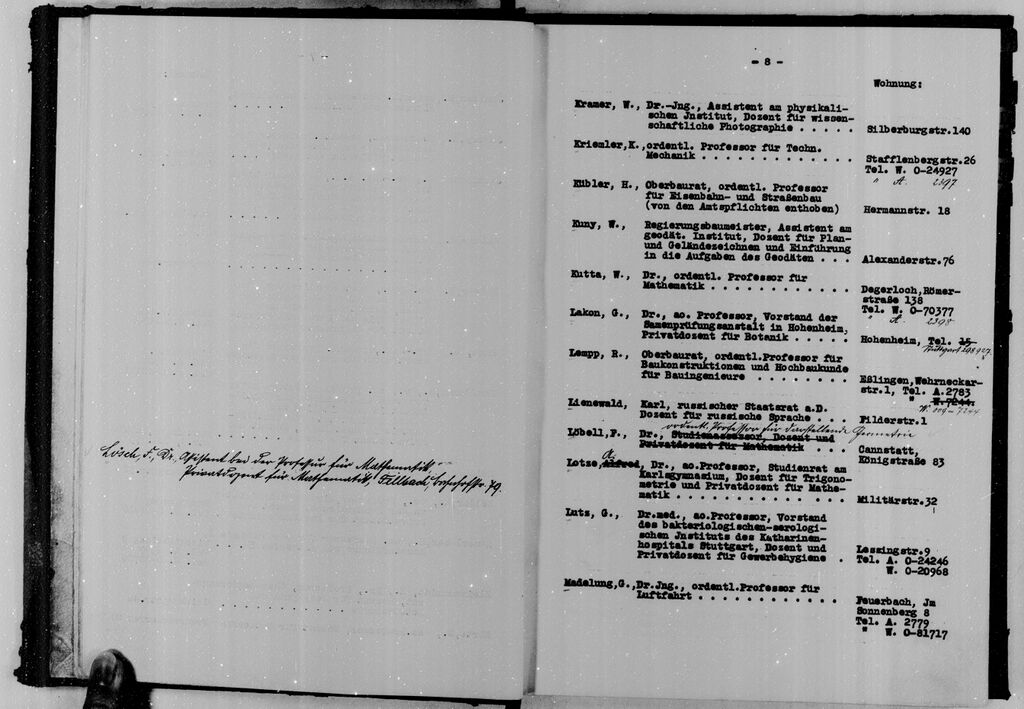 Lösch, F., Dr., Assistent bei der Professur für Mathematik,
Privatdozent für Mathematik, Fellbach, Bahnhofstr. 79.
- 8 -
Wohnung:
Kramer, W., Dr.-Jng., Assistent am physikali-
schen Jnstitut, Dozent für wissen-
schaftliche Photographie . . . . . Silberburgstr.140
Kriemler,K.,ordentl. Professor für Techn.
Mechanik . . . . . . . . . . . . . Stafflenbergstr.26
Tel. W. 0-24927
" A. 2397
Kübler, H., Oberbaurat, ordentl. Professor
für Eisenbahn- und Straßenbau
(von den Amtspflichten enthoben) Hermannstr. 18
Kuny, W., Regierungsbaumeister, Assistent am
geodät. Institut, Dozent für Plan-
und Geländezeichnen und Einführung
in die Aufgaben des Geodäten . . . Alexanderstr.76
Kutta, W., Dr., ordentl. Professor für
Mathematik . . . . . . . . . . . . Degerloch,Römer-
straße 138
Tel. W. 0-70377
" A. 2398
Lakon, G., Dr., ao. Professor, Vorstand der
Samenprüfungsanstalt in Hohenheim,
Privatdozent für Botanik . . . . . Hohenheim, Tel. 15
Stuttgart
Lempp, R., Oberbaurat, ordentl.Professor für
Baukonstruktionen und Hochbaukunde
für Bauingenieure . . . . . . . . Eßlingen,Wehrneckar-
str.1, Tel. A.2783
" W.7244.
W. 009-7244
Lienewald, Karl, russischer Staatsrat a.D.
Dozent für russische Sprache . . . Filderstr.1
ordentl. Professor für darstellende Geometrie
Löbell,F., Dr., Studienassessor, Dozent und
Privatdozent für Mathematik . . . . Cannstatt,
Königstraße 83
A.
Lotze, Alfred, Dr., ao.Professor, Studienrat am
Karlsgymnasium, Dozent für Trigono-
metrie und Privatdozent für Mathe-
matik . . . . . . . . . . . . . . Militärstr.32
Lutz, G., Dr.med., ao.Professor, Vorstand
des bakteriologischen-serologi-
schen Jnstituts des Katharinen-
hospitals Stuttgart, Dozent und
Privatdozent für Gewerbehygiene . Lessingstr.9
Tel. A. 0-24246
W. 0-20968
Madelung,G.,Dr.Jng., ordentl.Professor für
Luftfahrt . . . . . . . . . . . . . Feuerbach, Jm
Sonnenberg 8
Tel. A. 2779
" W. 0-81717